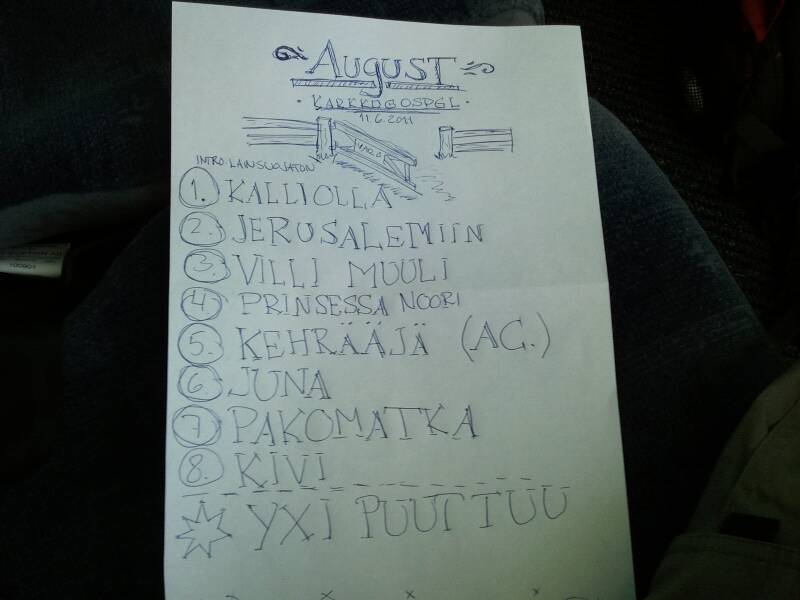 AUGUST
KARKKUGOSPEL
11.6.2011
INTRO: LAINSUOJATON
1. KALLIOLLA
2. JERUSALEMIIN
3. VILLI MUULI
4. PRINSESSA NOORI
5. KEHRÄÄJÄ (AC.)
6. JUNA
7. PAKOMATKA
8. KIVI
YXI PUUTTUU